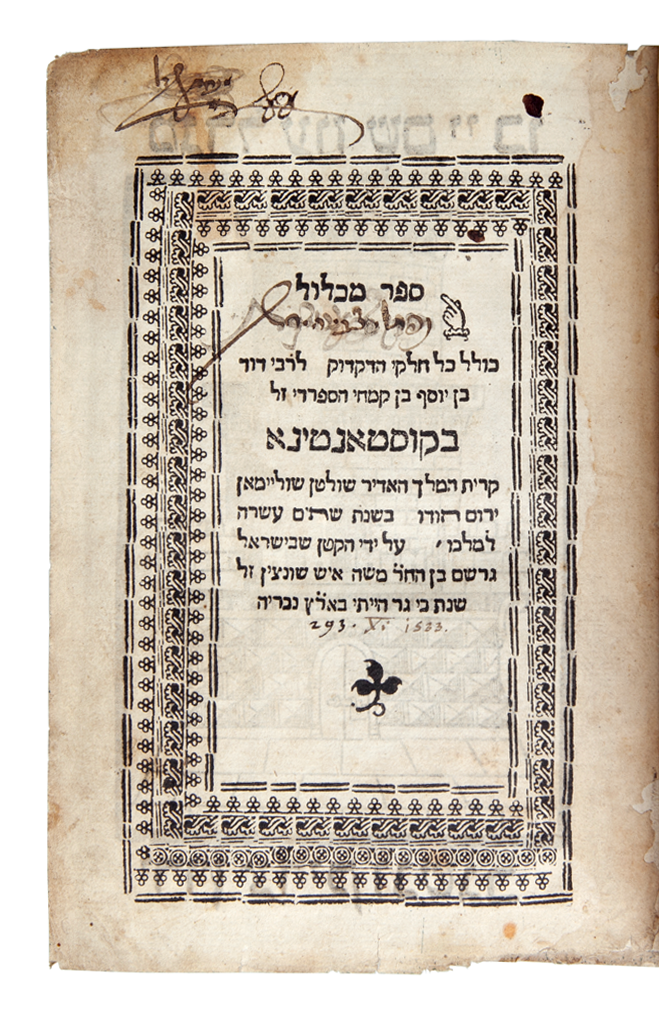 ספר מכלול
כולל כל חלקי הדקדוק לרבי דוד
בן יוסף בן קמחי הספרדי זל
בקוסטאנטינא
קרית המלך האדיר שולטן שולימאן
ירום הודו בשנת שתים עשרה
למלכו׳ על ידי הקטן שבישראל
גרשם בן החר משה איש שונצין זל
שנת כי גר הייתי בארץ נכריה
293. 1533.